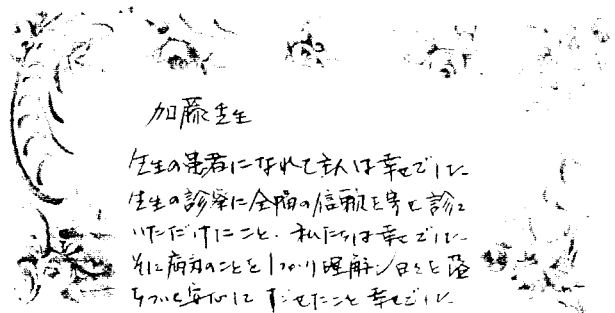 加藤先生
先生の患者になれて主人は幸せでした
先生の診察に全幅の信頼を寄せ診て
いただけたこと、私たちは幸せでした
そして病気のことをしっかり理解し日々を落
ちついて安心して すごせたこと幸せでした